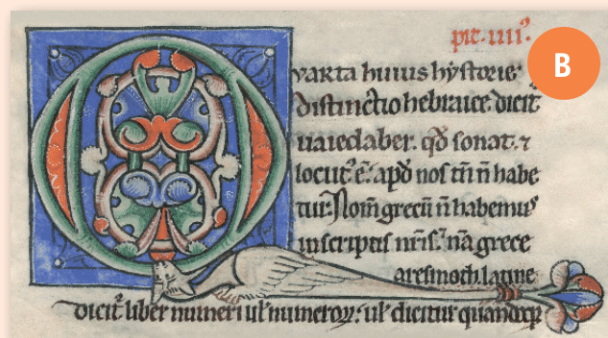 pͬe. iiii.
B
varta huius hystorie
distinctio hebraice dicit᷑
uaiedaber. qđ sonat. ⁊
locut᷒ ē. apđ nos tn̄ n̄ habe
tur. Nom̄ grecū n̄ habemus
inscriptis nr̄is. nā grece
aresmoth. latine
dicit᷑ liber numeri ul᷑ numeroꝝ. ul᷑ dicitur quandoqꝫ